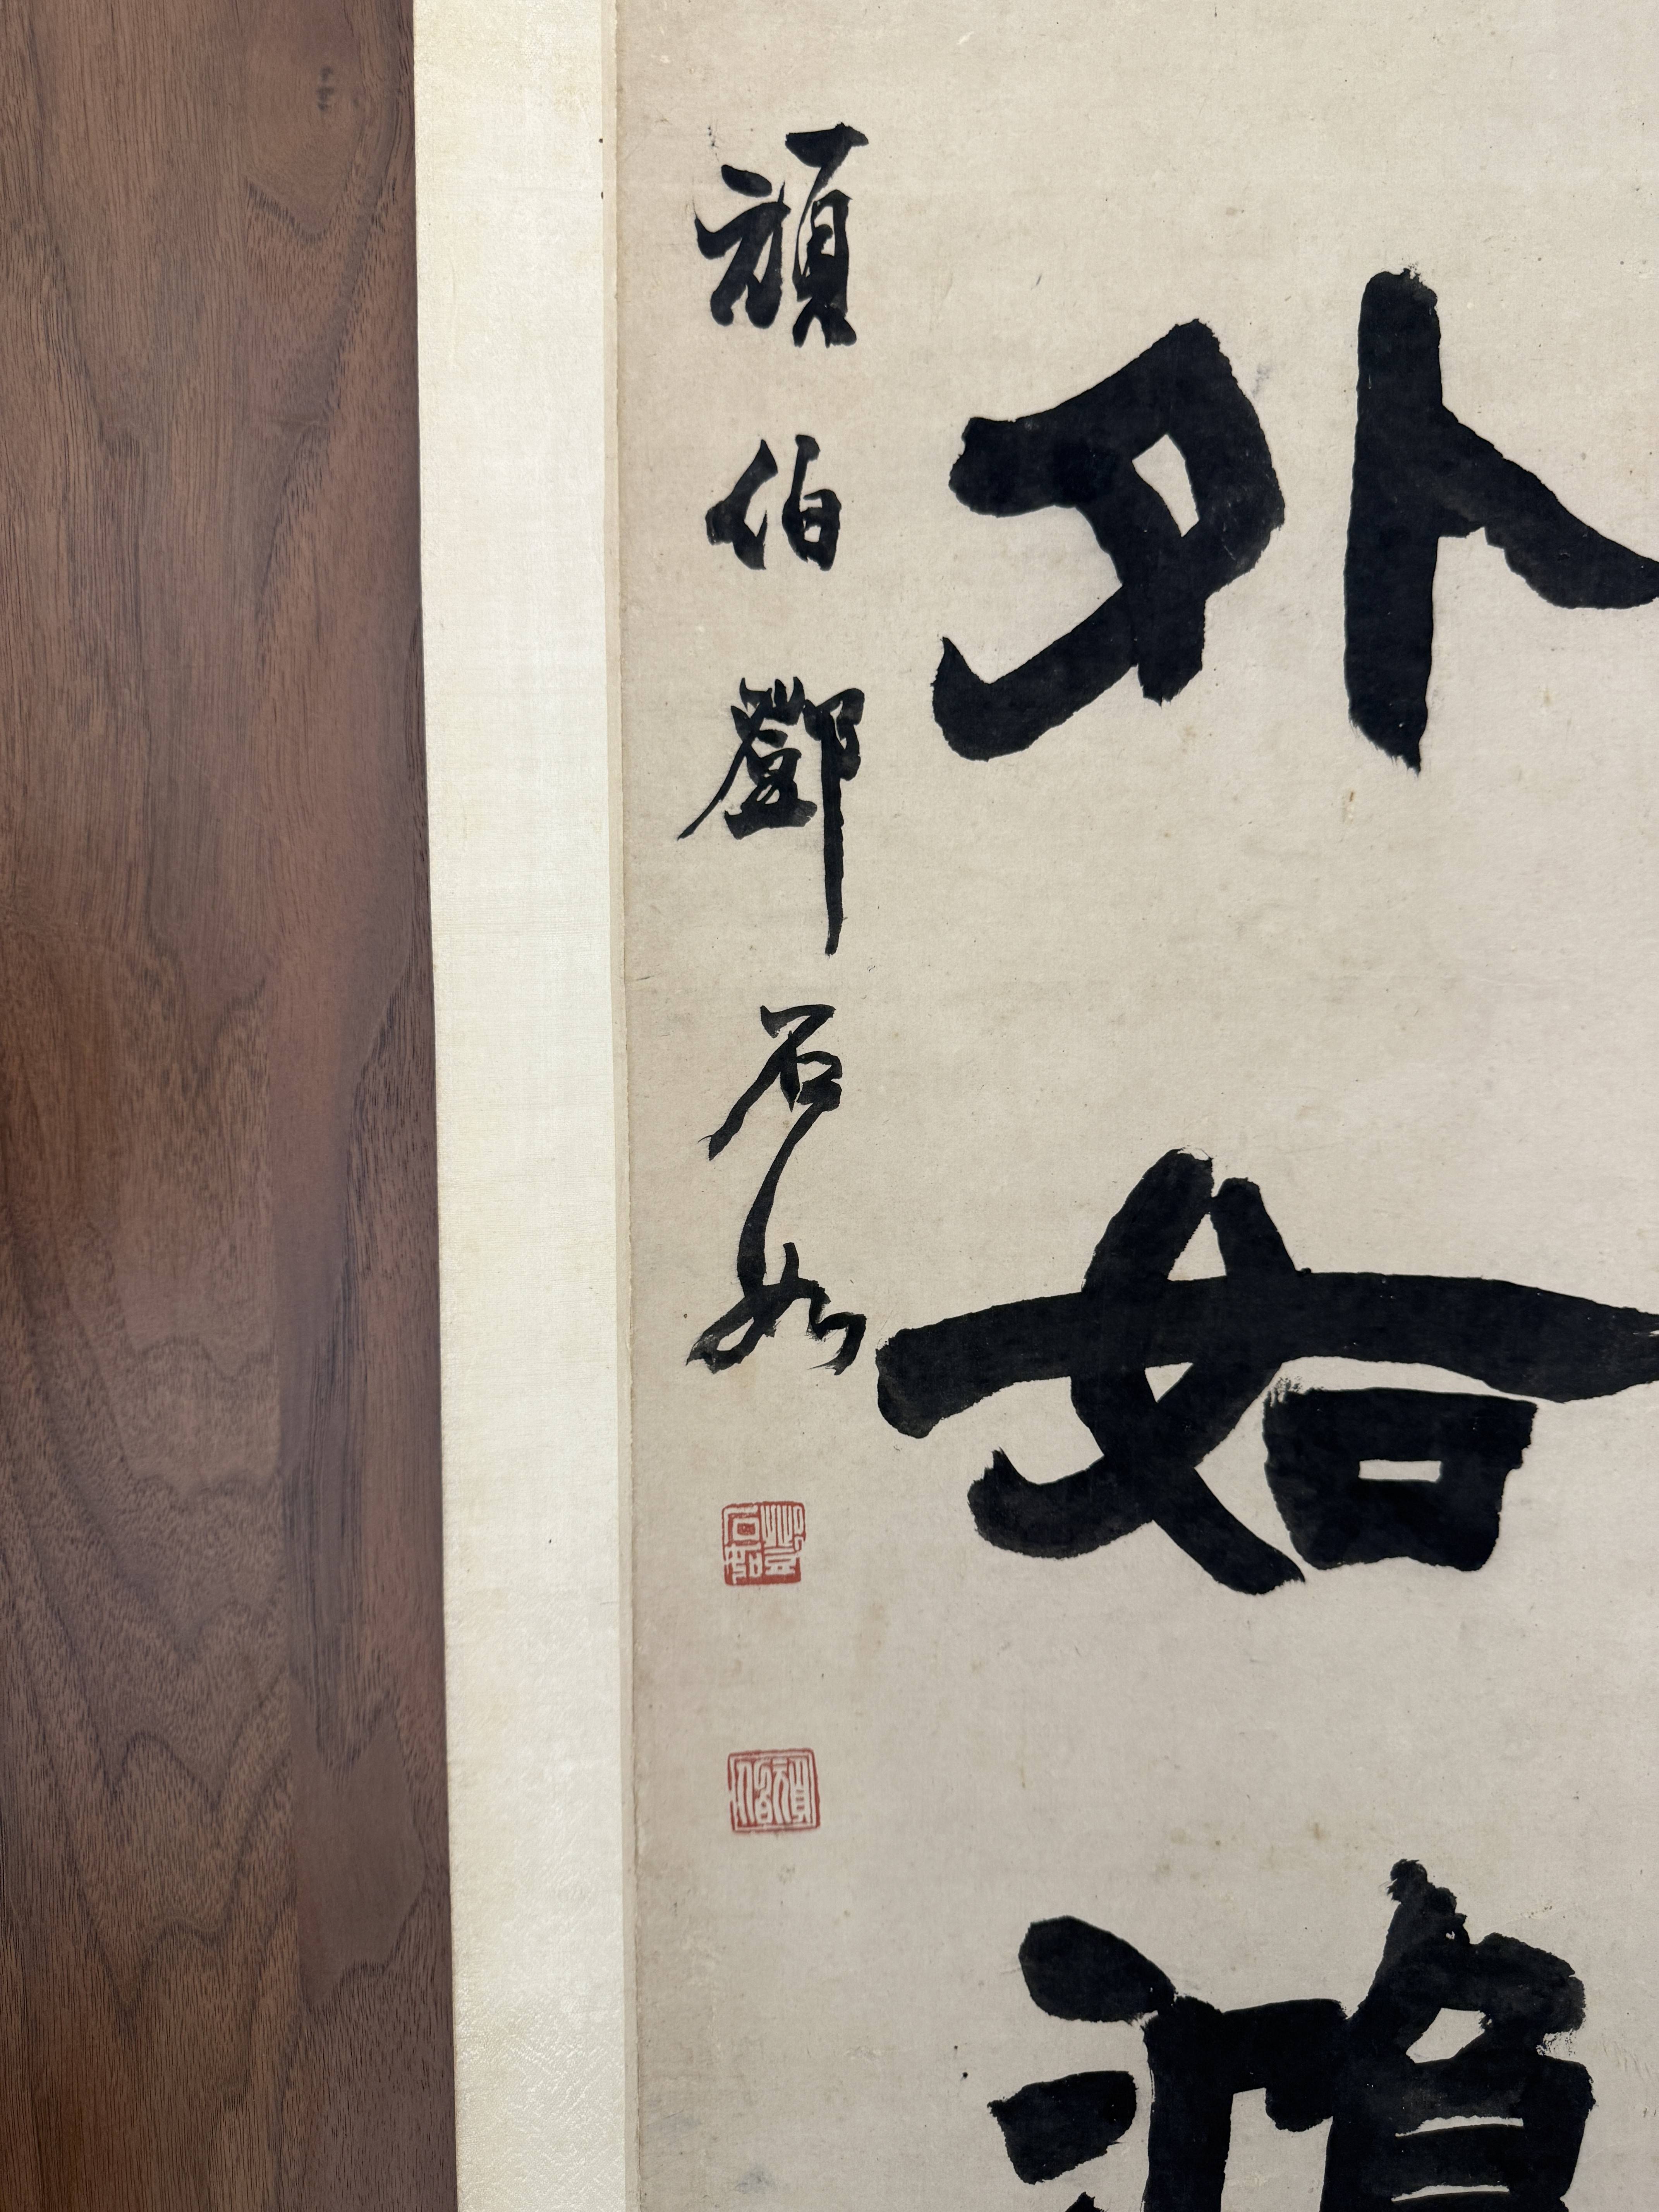 外如鴻
頑伯鄧石如
鄧石如
頑伯